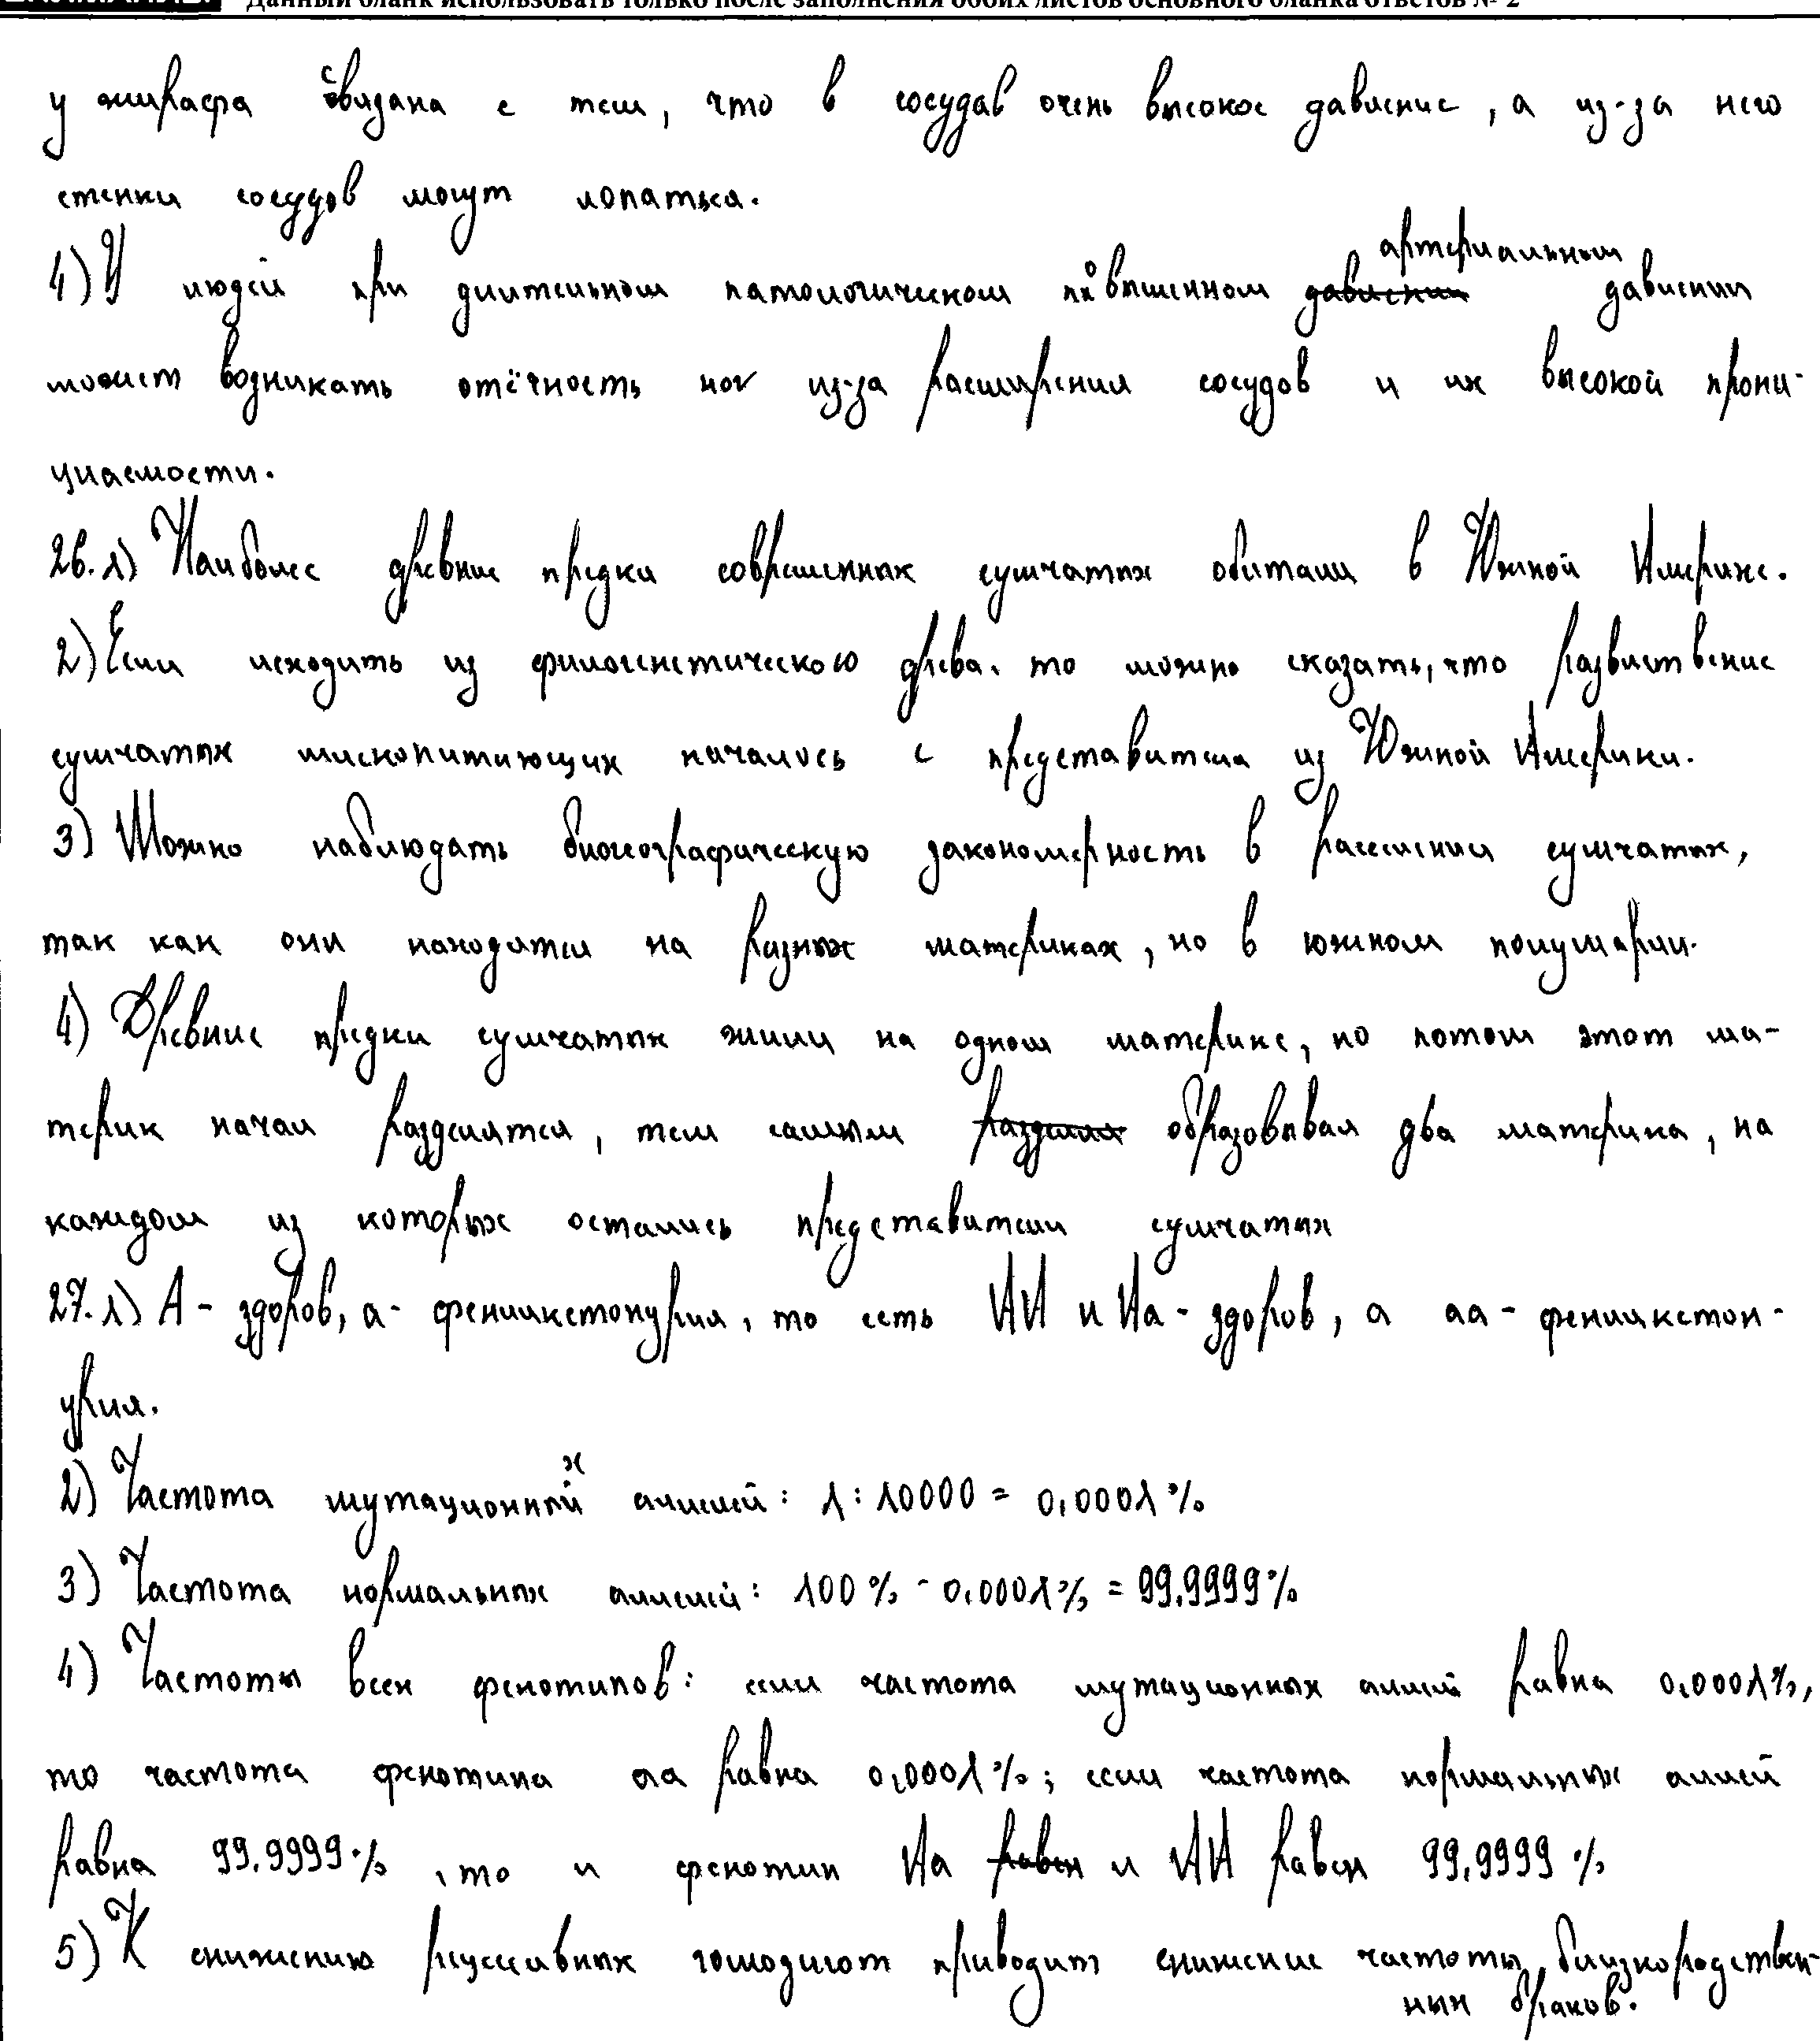 Данный бланк использовать только после заполнения обоих листов основного бланка ответов № 2
у жирафа связана с тем, что в сосудав очень высокое давление, а из-за него
стенки сосудов могут лопаться.
4) У людей при длительном патологическом повышенном давлении артериальном давлении
может возникать отёчность ног из-за расширения сосудов и их высокой прони-
цаемости.
26. 1) Наиболее древние предки современных сумчатых обитали в Южной Америке.
2) Если исходить из филогенетического древа, то можно сказать, что разветвление
сумчатых млекопитающих началось с представителя из Южной Америки.
3) Можно наблюдать биогеографическую закономерность в расселении сумчатых,
так как они находятся на разных материках, но в южном полушарии.
4) Древние предки сумчатых жили на одном материке, но потом этот ма-
терик начал разделятся, тем самым образовывая два материка, на
каждом из которых остались представители сумчатых
27. 1) А - здоров, а - фенилкетонурия, то есть АА и Аа - здоров, а аа - фенилкетон-
урия.
2) Частота мутационных аллелей: 1 : 10000 = 0,0001%
3) Частота нормальных аллелей: 100% - 0,0001% = 99,9999%
4) Частоты всех фенотипов: если частота мутационных аллей равна 0,0001%,
то частота фенотипа аа равна 0,0001%; если частота нормальных аллей
равна 99,9999%, то и фенотип Аа равен и АА равен 99,9999%
5) К снижению рецессивных гомозигот приводит снижение частоты близкородствен-
ных браков.